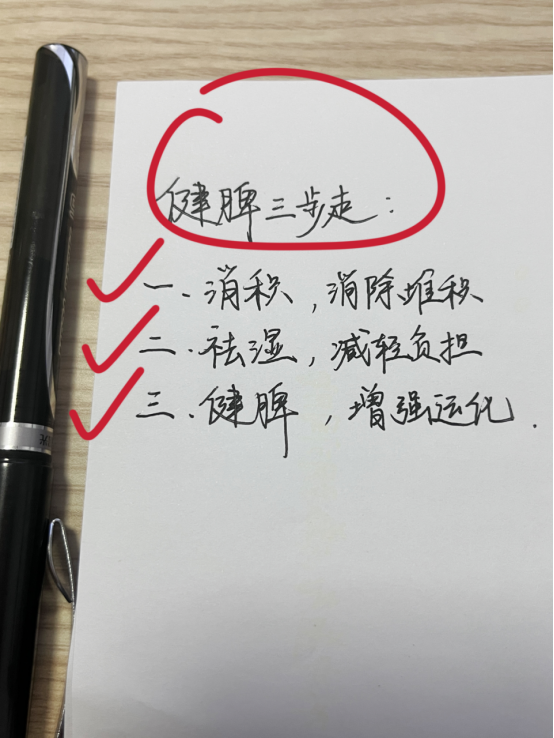 健脾三步走:
一.消积,消除堆积
二.祛湿,减轻负担
三.健脾,增强运化.